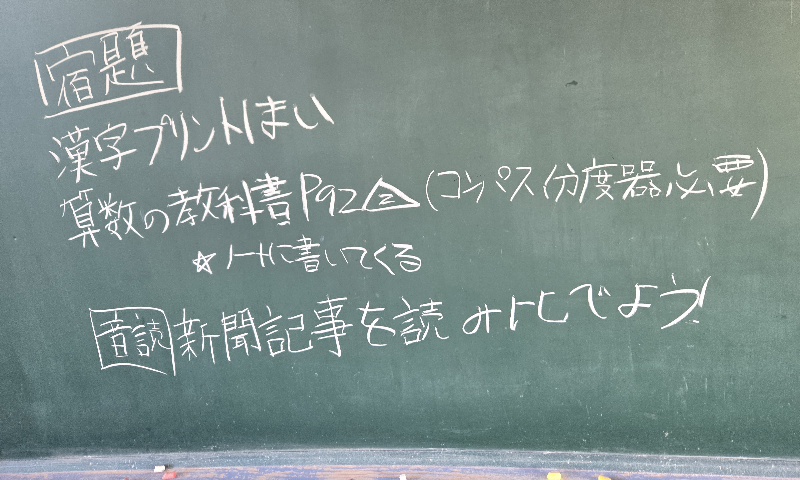 宿題
漢字プリント1まい
算数の教科書P92 △2 (コンパス分度器必要)
☆ノートに書いてくる
音読 新聞記事を読み でよう!